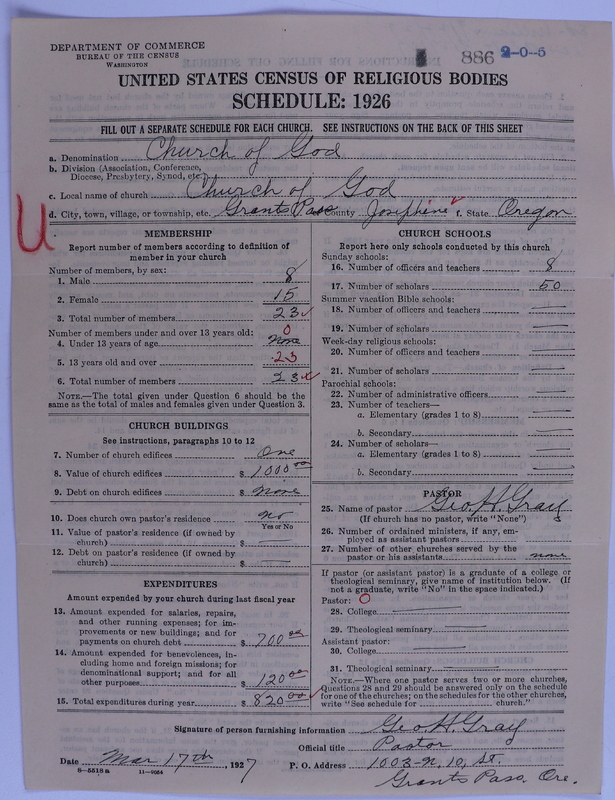 DEPARTMENT OF COMMERCE
BUREAU OF THE CENSUS
WASHINGTON
886 2-0-5
UNITED STATES CENSUS OF RELIGIOUS BODIES
SCHEDULE: 1926
FILL OUT A SEPARATE SCHEDULE FOR EACH CHURCH. SEE INSTRUCTIONS ON THE BACK OF THIS SHEET
a. Denomination Church of God
b. Division (Association, Conference,
Diocese, Presbytery, Synod, etc.)
c. Local name of church Church of God
d. City, town, village, or township, etc. Grants Pass County Josephine f. State Oregon
U
MEMBERSHIP
Report number of members according to definition of
member in your church
Number of members, by sex:
1. Male 8
2. Female 15
3. Total number of members 23
Number of members under and over 13 years old: 0
4. Under 13 years of age none
5. 13 years old and over 23
6. Total number of members 23
NOTE.—The total given under Question 6 should be
the same as the total of males and females given under Question 3.
CHURCH BUILDINGS
See instructions, paragraphs 10 to 12
7. Number of church edifices One
8. Value of church edifices $ 1000 00
9. Debt on church edifices $ None
10. Does church own pastor's residence no
Yes or No
11. Value of pastor's residence (if owned by
church) $
12. Debt on pastor's residence (if owned by
church) $
EXPENDITURES
Amount expended by your church during last fiscal year
13. Amount expended for salaries, repairs,
and other running expenses; for im-
provements or new buildings; and for
payments on church debt $ 700 00
14. Amount expended for benevolences, in-
cluding home and foreign missions; for
denominational support; and for all
other purposes $ 120 00
15. Total expenditures during year $ 820 00
CHURCH SCHOOLS
Report here only schools conducted by this church
Sunday schools:
16. Number of officers and teachers 8
17. Number of scholars 50
Summer vacation Bible schools:
18. Number of officers and teachers
19. Number of scholars
Week-day religious schools:
20. Number of officers and teachers
21. Number of scholars
Parochial schools:
22. Number of administrative officers
23. Number of teachers—
a. Elementary (grades 1 to 8)
b. Secondary
24. Number of scholars—
a. Elementary (grades 1 to 8)
b. Secondary
PASTOR
25. Name of pastor Geo. H. Gray
(If church has no pastor, write "None")
26. Number of ordained ministers, if any, em-
ployed as assistant pastors
27. Number of other churches served by the
pastor or his assistants none
If pastor (or assistant pastor) is a graduate of a college or
theological seminary, give name of institution below. (If
not a graduate, write "No" in the space indicated.)
Pastor: O
28. College
29. Theological seminary
Assistant pastor:
30. College
31. Theological seminary
NOTE.—Where one pastor serves two or more churches,
Questions 28 and 29 should be answered only on the schedule
for one of the churches; on the schedules for the other churches,
write "See schedule for church."
Signature of person furnishing information Geo. H. Gray
Official title Pastor
Date Mar 17th, 1927 P. O. Address 1003-N. 10, St.
8—5518 a 11—9054 Grants Pass. Ore.